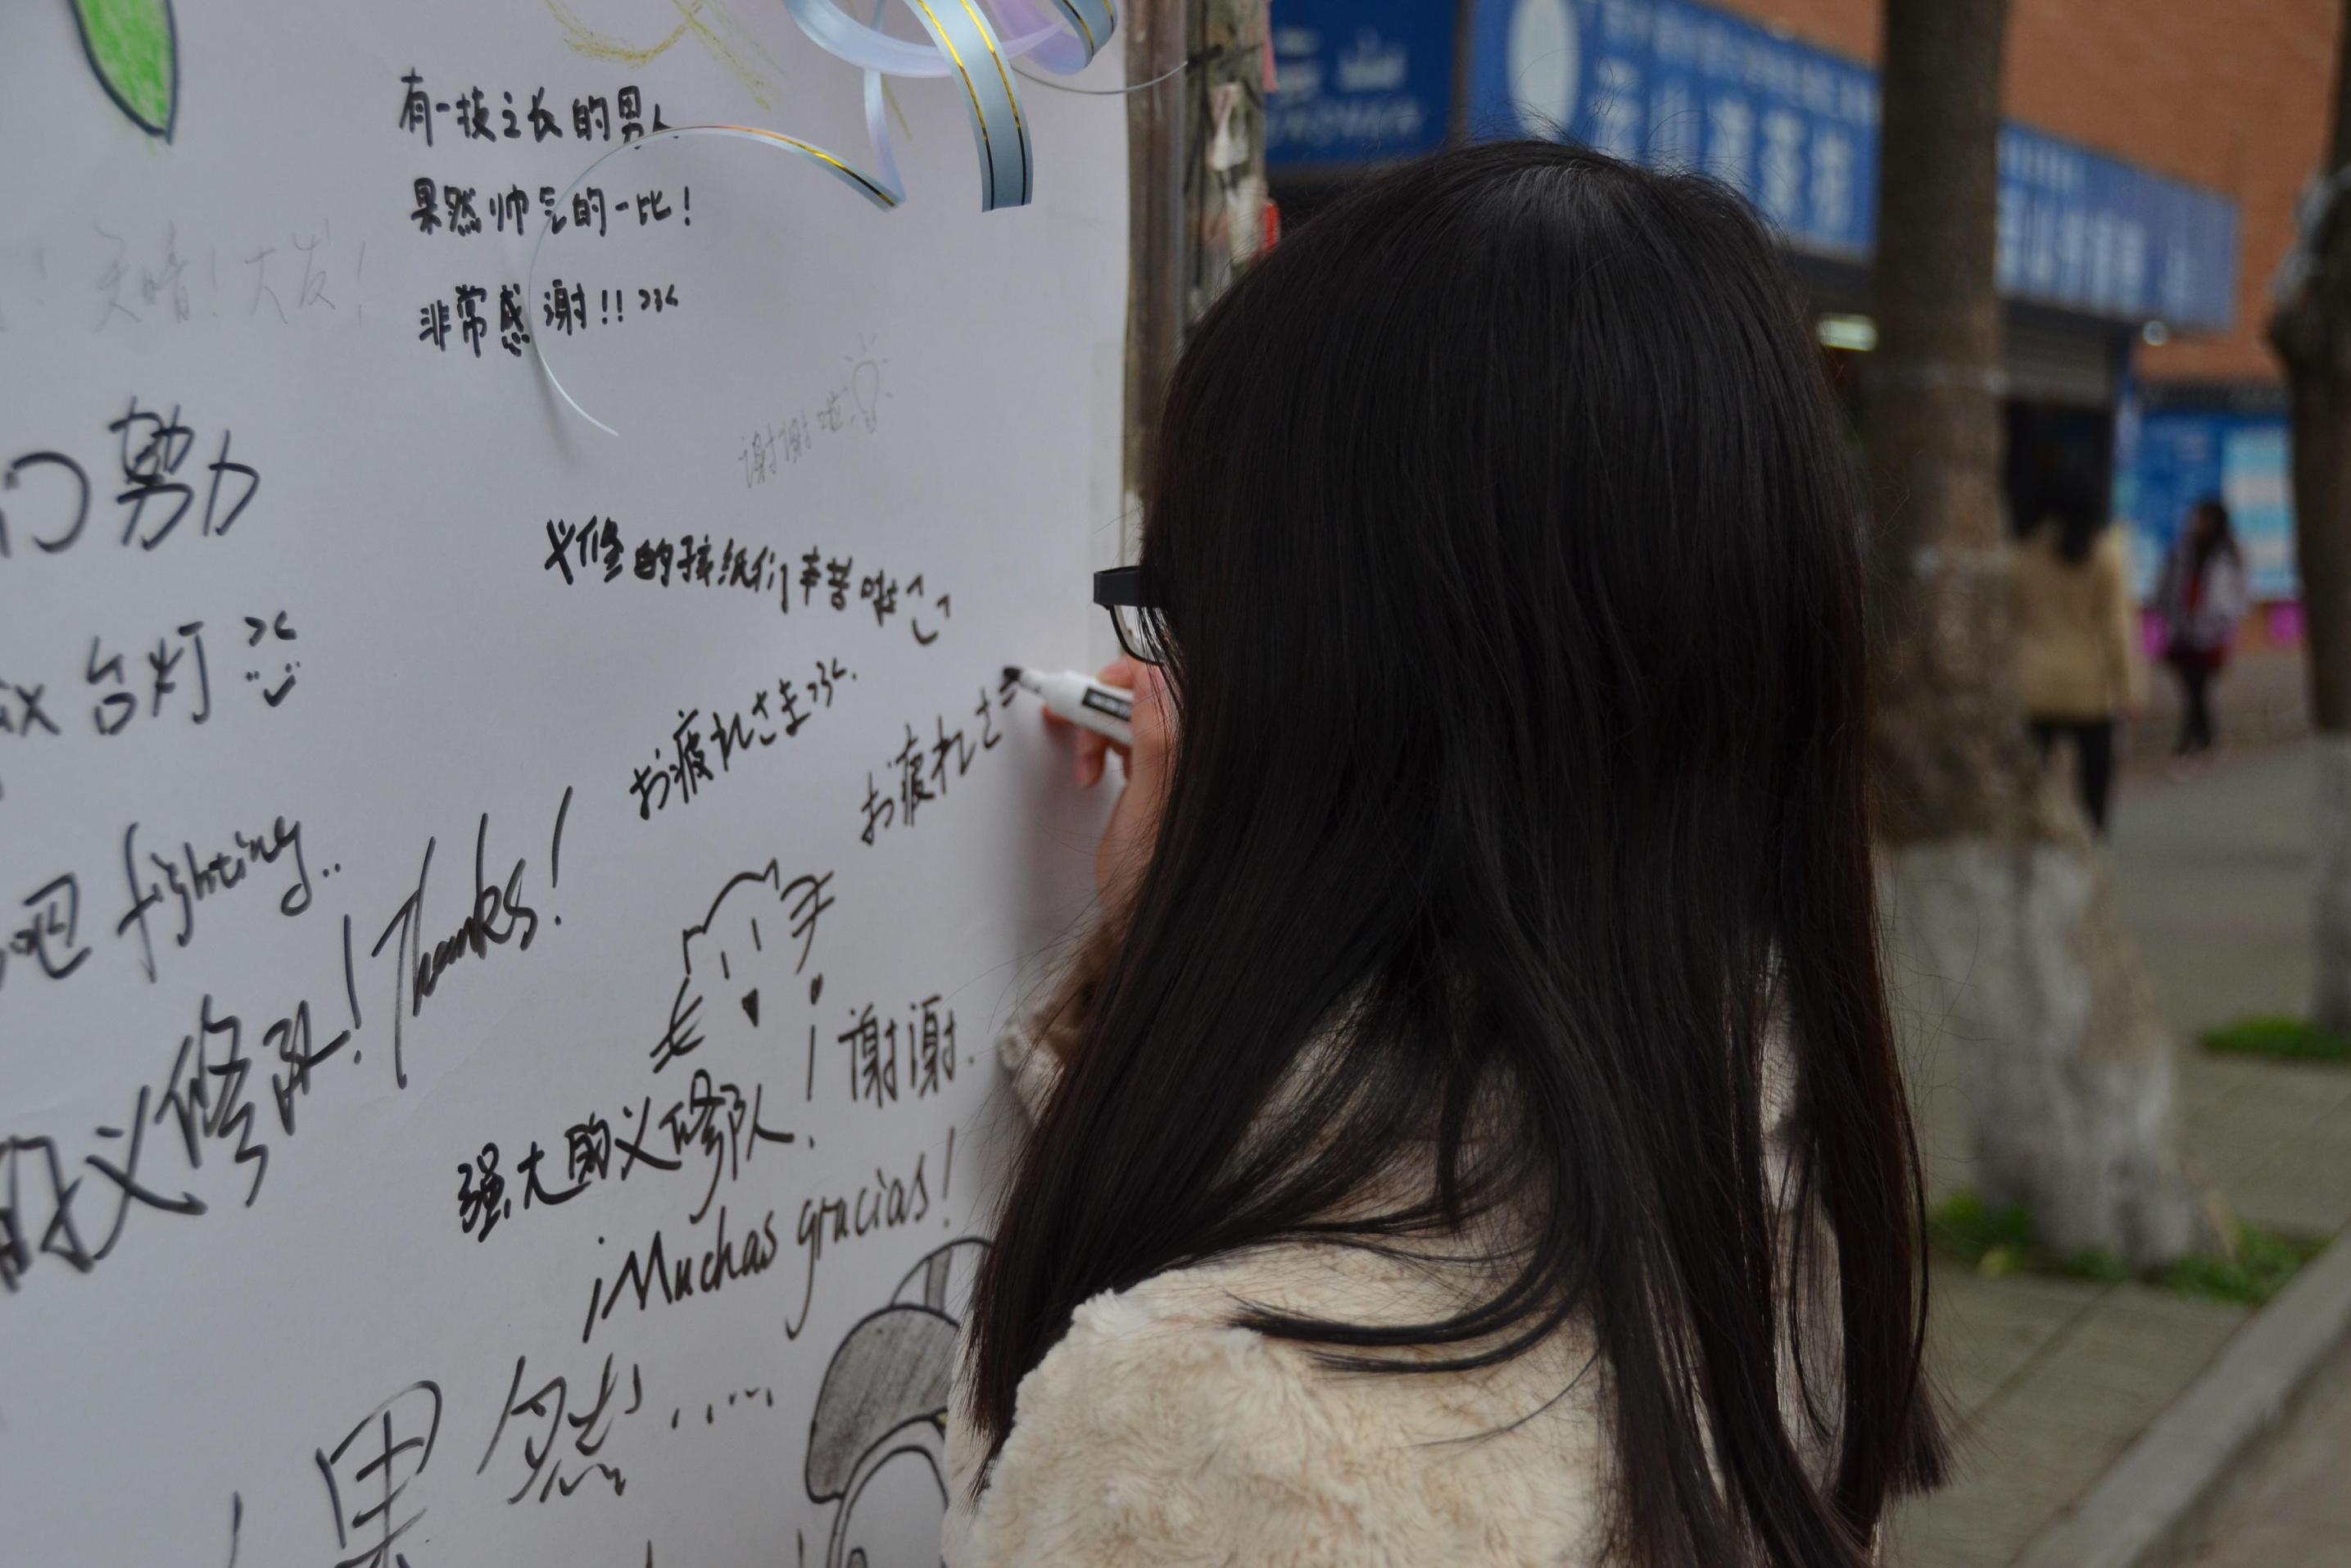 有一技之长的男人
果然帅气的一比!
非常感谢!! >3<
天晴!大发!
谢谢啦
们努力
义修的孩纸们辛苦啦
台灯
お疲れさま >3<.
お疲れさ
吧 fighting..
的义修队! Thanks!
强大的义修队! 谢谢.
¡Muchas gracias!
果然......